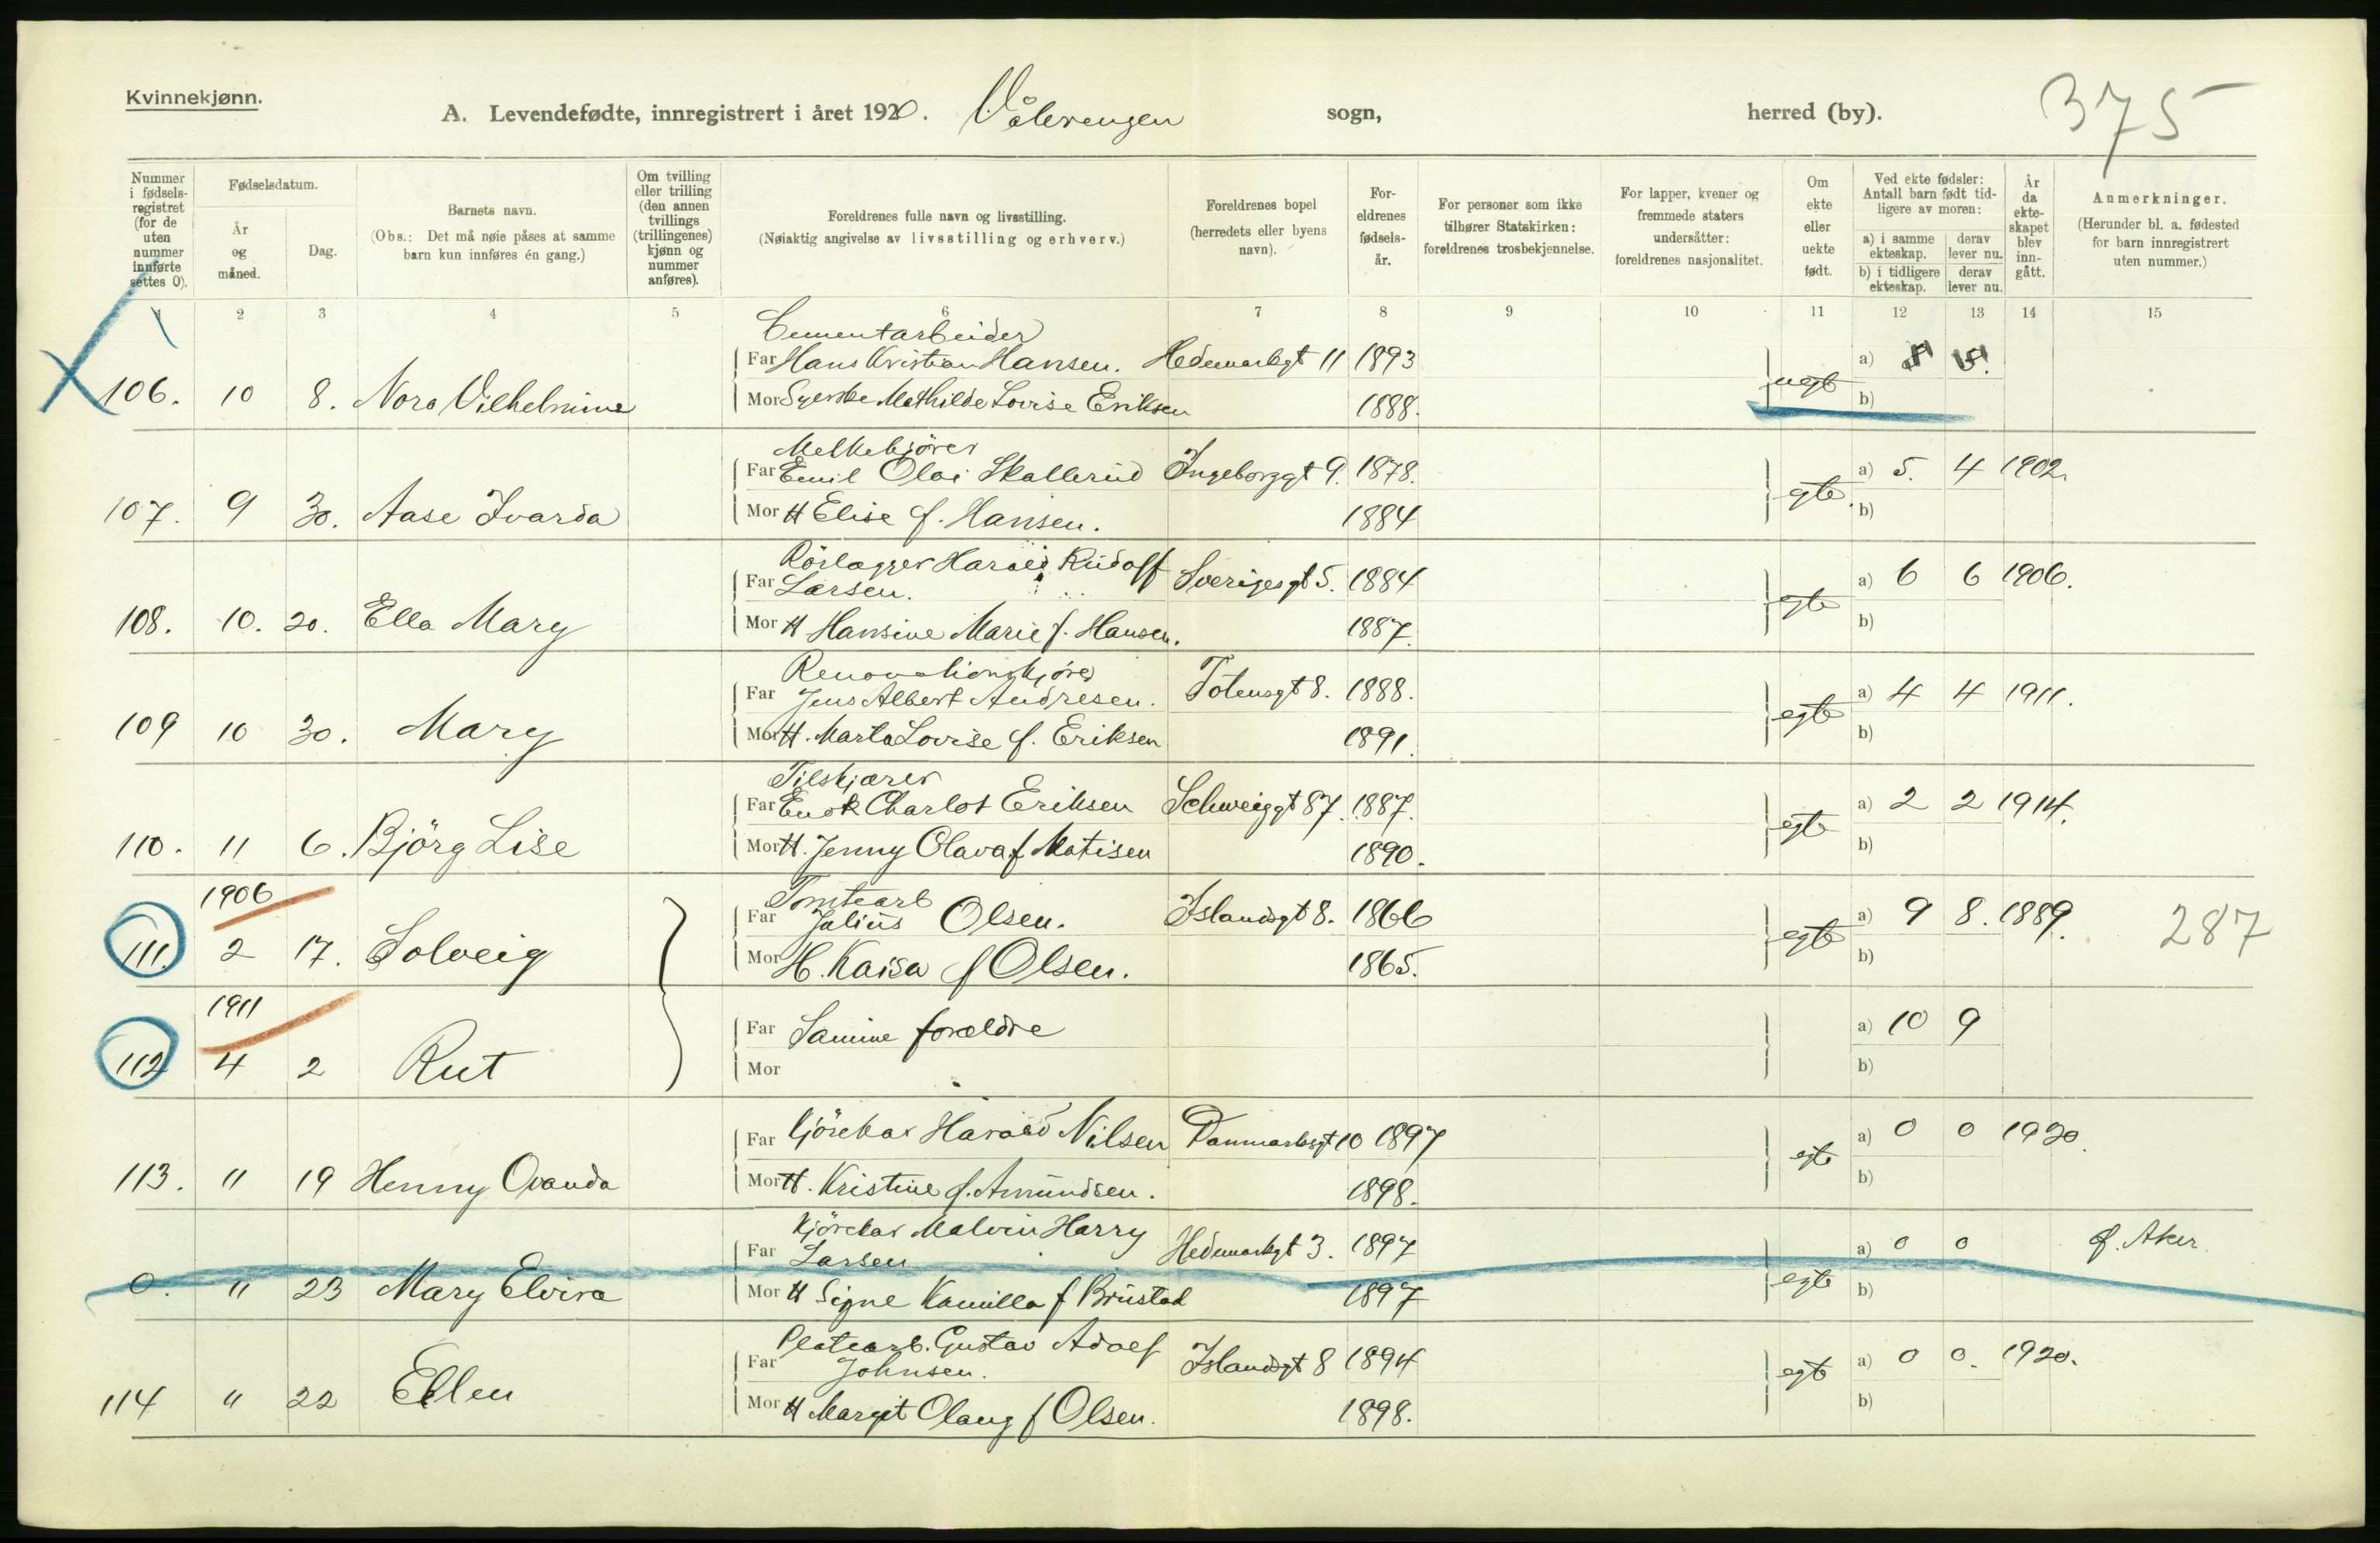 Kvinnekjønn.
A. Levendefødte, innregistrert i året 1920. Vålerengen sogn, herred (by). 375
Nummer i fødsels-registret (for de uten nummer innførte settes 0).
Fødselsdatum.
År og måned.
Dag.
Barnets navn.
(Obs.: Det må nøie påses at samme barn kun innføres én gang.)
Om tvilling eller trilling (den annen tvillings (trillingenes) kjønn og nummer anføres).
Foreldrenes fulle navn og livsstilling.
(Nøiaktig angivelse av livsstilling og erhverv.)
Foreldrenes bopel (herredets eller byens navn).
For-eldrenes fødsels-år.
For personer som ikke tilhører Statskirken: foreldrenes trosbekjennelse.
For lapper, kvener og fremmede staters undersåtter: foreldrenes nasjonalitet.
Om ekte eller uekte født.
Ved ekte fødsler: Antall barn født tid-ligere av moren:
a) i samme ekteskap. derav lever nu.
b) i tidligere ekteskap. derav lever nu.
År da ekte-skapet blev inn-gått.
Anmerkninger.
(Herunder bl. a. fødested for barn innregistrert uten nummer.)
1 2 3 4 5 6 7 8 9 10 11 12 13 14 15
Cementarbeider
Far Hans Kristian Hansen. Hedemarkgt 11 1893 a)
106. 10 8. Nora Vilhelmine Mor Syerske Mathilde Lovise Eriksen 1888. uegte b)
Melkekjörer
Far Emil Olai Skallerud Ingeborggt 9. 1878. a) 5. 4 1902.
107. 9 30. Aase Ivarda Mor H Elise f. Hansen. 1884 egte b)
Rörlægger Harald Rudolf
Far Larsen. Sverigesgt 5. 1884 a) 6 6 1906.
108. 10. 20. Ella Mary Mor H Hansine Marie f. Hansen. 1887. egte b)
Renovationskjører
Far Jens Albert Andresen. Totensgt 8. 1888. a) 4 4 1911.
109 10 30. Mary Mor H. Marta Lovise f. Eriksen 1891. egte b)
Tilskjærer
Far Enok Charlot Eriksen Schweiggt 87. 1887. a) 2 2 1914.
110. 11 6. Björg Lise Mor H. Jenny Olava f Matisen 1890. egte b)
1906
Tomtearb
Far Julius Olsen. Islandsgt 8. 1866 a) 9 8. 1889. 287
111. 2 17. Solveig Mor H. Kaisa f Olsen. 1865. egte b)
1911
Far Samme forældre a) 10 9
112 4 2 Rut Mor b)
Far Kjörekar Harald Nilsen Danmarksgt 10 1897 a) 0 0 1920.
113. " 19 Henny Ovanda Mor H. Kristine f. Amundsen. 1898. egte b)
Kjörekar Malvin Harry
Far Larsen Hedemarkgt 3. 1897 a) 0 0 f. Aker.
0. " 23 Mary Elvira Mor H Signe Kamilla f Brustad 1897 egte b)
Platearb. Gustav Adolf
Far Johnsen. Islandsgt 8 1894 a) 0 0. 1920.
114 " 22 Ellen Mor H Margit Olaug f Olsen. 1898. egte b)